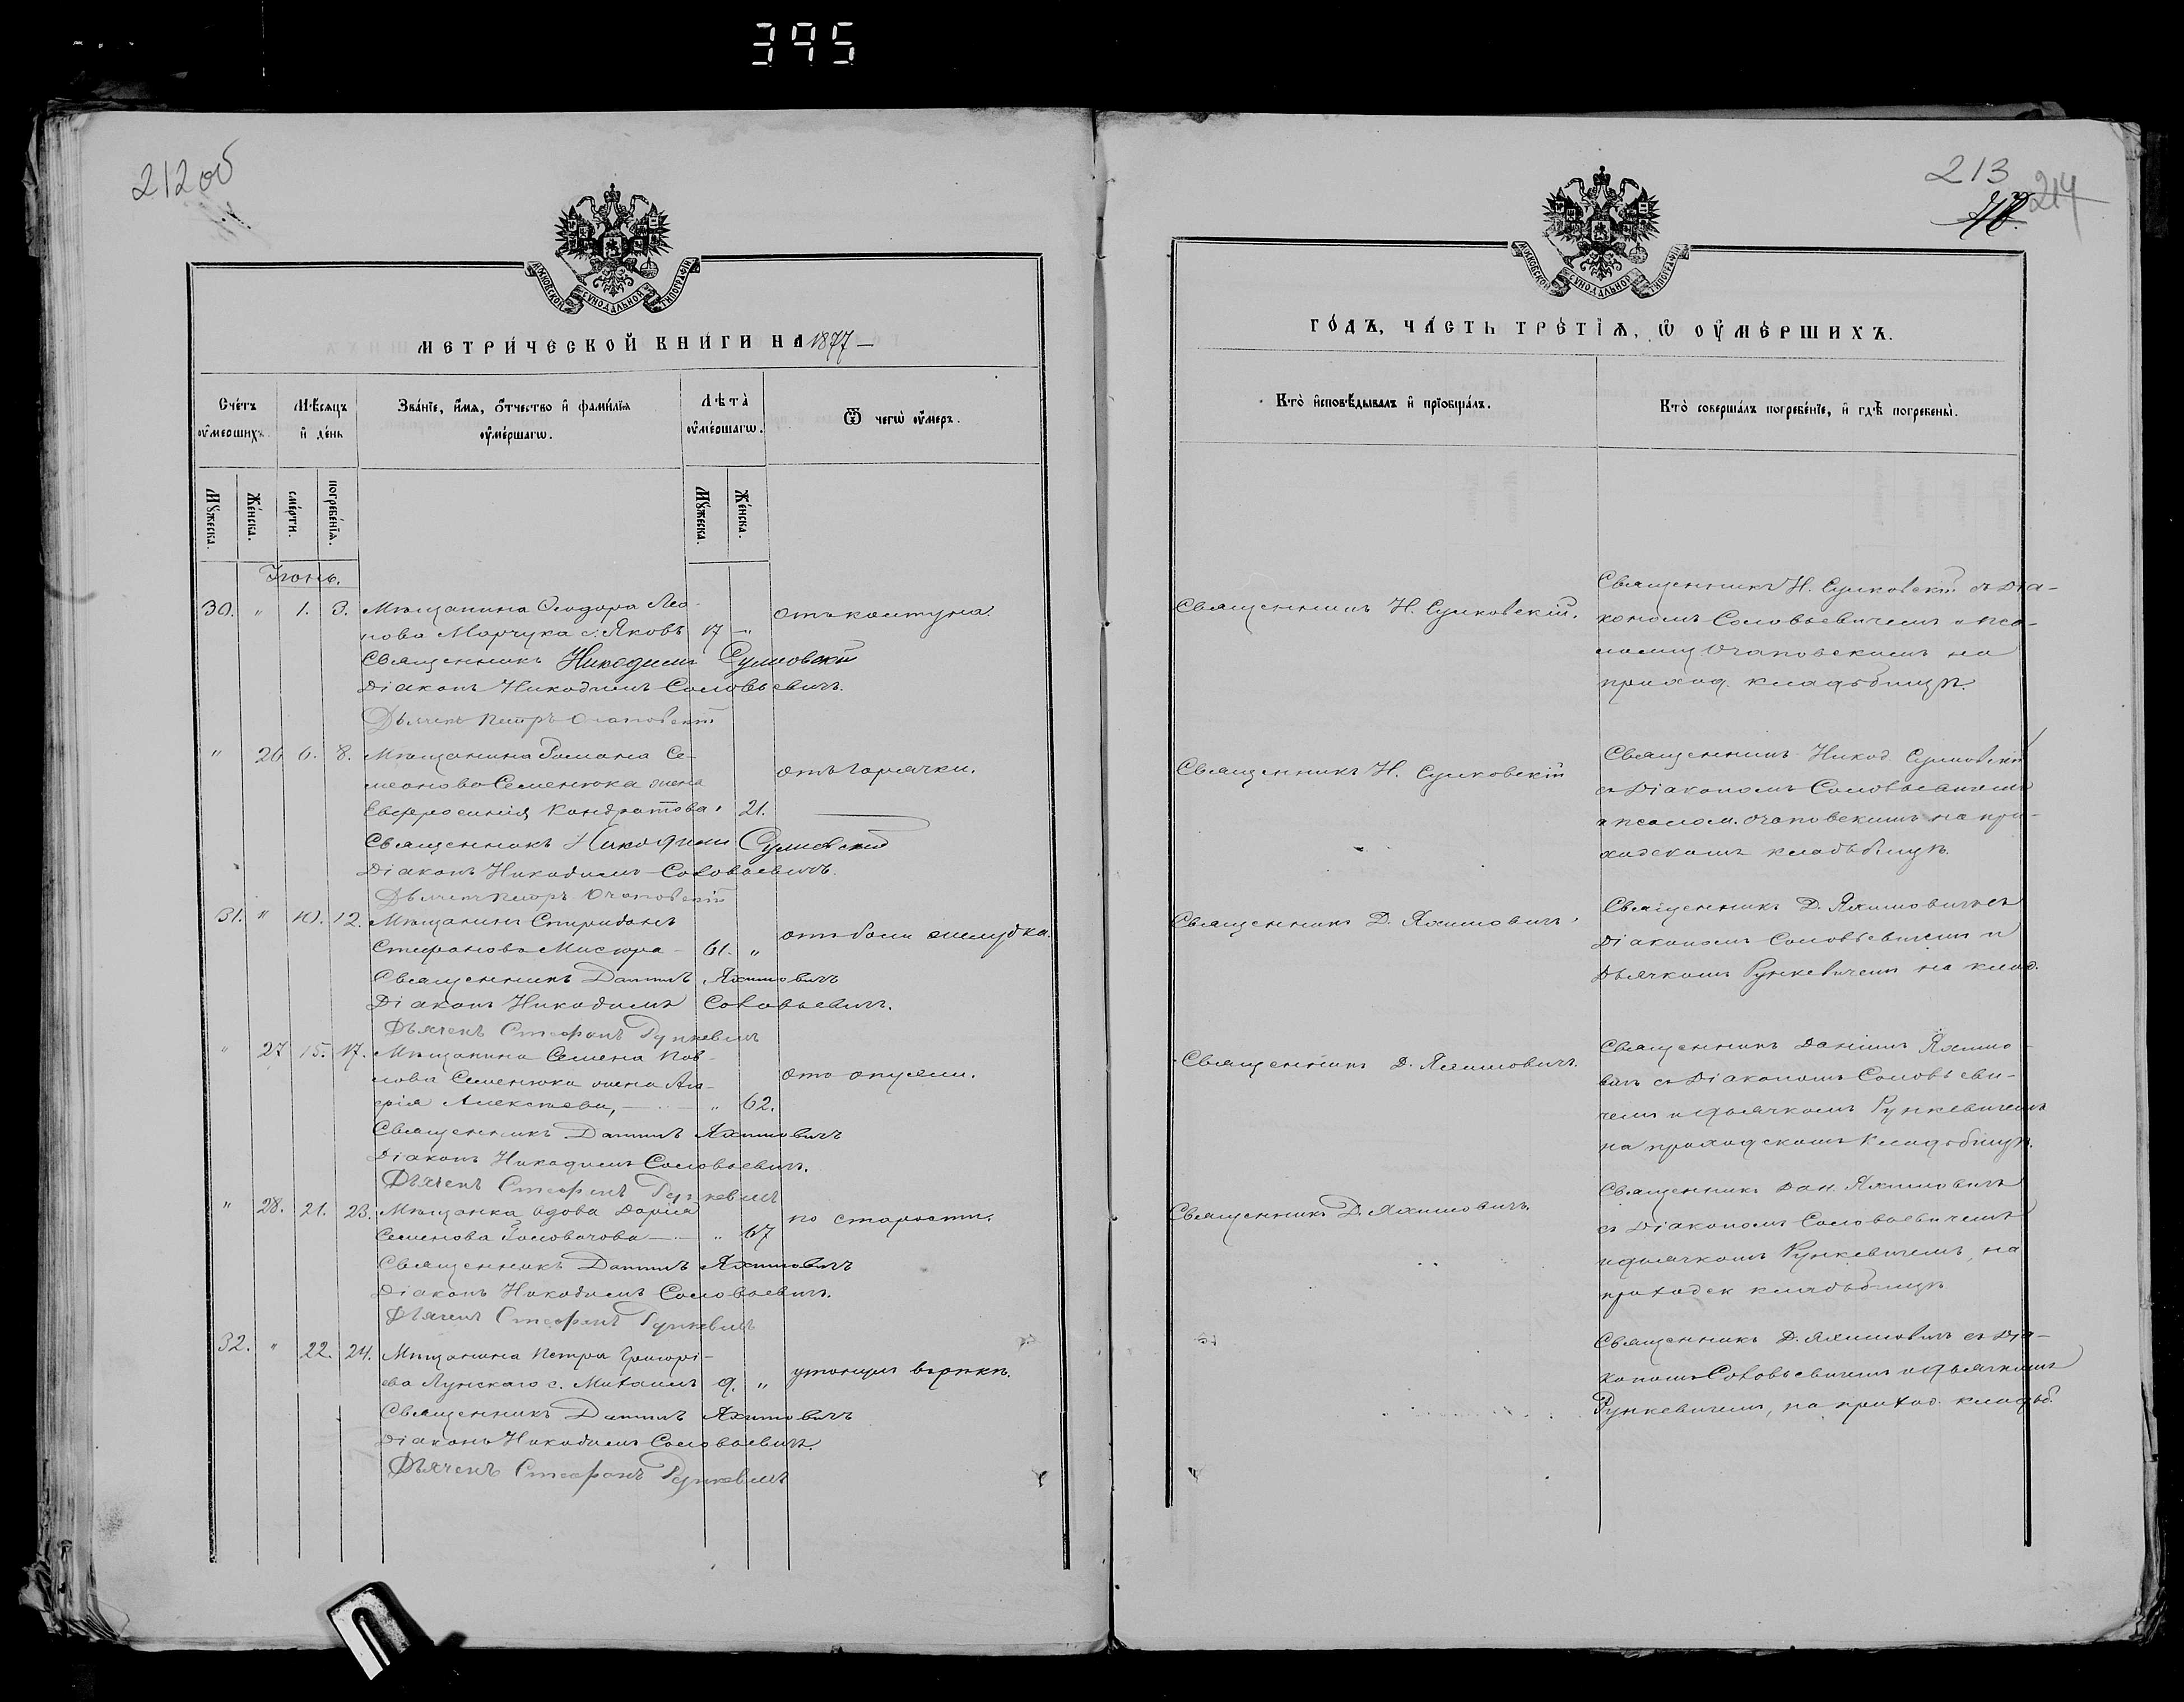 395
212 об
МОСКОВСКОЙ СѴНОДАЛЬНОЙ ТИПОГРАФІИ
МЕТРИ́ЧЕСКОЙ КНИ́ГИ НА 1877
Сче́тъ ᲂу҆ме́ршихъ.
Мѣ́сяцъ и҆ де́нь
Зва́нїе, и҆́мѧ, ѻ҆́тчество и҆ фами́лїѧ ᲂу҆ме́ршагѡ.
Лѣ́та̀ ᲂу҆ме́ршагѡ.
Ѿ чегѡ̀ ᲂу҆́меръ.
Мꙋ́жеска.
Же́нска.
сме́рти.
погребе́нїѧ.
Мꙋ́жеска.
Же́нска.
Іюнь.
30. " 1. 3. Мѣщанина Ѳеодора Лео-
нова Марчука с: Яковъ 17 " отъ колтуна.
Священникъ Никодимъ Сулковскій
Діаконъ Никодимъ Соловьевичъ.
Дьячекъ Петръ Очаповскій
" 26 6. 8. Мѣщанина Романа Се-
меонова Семенюка жена отъ горячки.
Евфросинія Кондратова 21.
Священникъ Никодимъ Сулковскій
Діаконъ Никодимъ Соловьевичъ.
Дьячекъ Петръ Очаповскій
31. " 10. 12. Мѣщанинъ Спиридонъ
Стефановъ Мисюра 61. " отъ боли желудка.
Священникъ Даніилъ Яхимовичъ
Діаконъ Никодимъ Соловьевичъ.
Дьячекъ Стефанъ Рункевичъ
" 27 15. 17. Мѣщанина Семена Пав-
лова Семенюка жена Ага- отъ опухли.
фія Алексѣева, " 62.
Священникъ Даніилъ Яхимовичъ
Діаконъ Никодимъ Соловьевичъ.
Дьячекъ Стефанъ Рункевичъ
" 28. 21. 23. Мѣщанка вдова Дарія
Семенова Головачова " 67 по старости.
Священникъ Даніилъ Яхимовичъ
Діаконъ Никодимъ Соловьевичъ.
Дьячекъ Стефанъ Рункевичъ
32. " 22. 24. Мѣщанина Петра Григорі-
ева Лунскаго с. Михаилъ 9. " утонулъ въ рѣкѣ.
Священникъ Даніилъ Яхимовичъ
Діаконъ Никодимъ Соловьевичъ.
Дьячекъ Стефанъ Рункевичъ
213
214
МОСКОВСКОЙ СѴНОДАЛЬНОЙ ТИПОГРАФІИ
ГО́ДЪ, ЧА́СТЬ ТРЕ́ТЇѦ, Ѽ ОУ҆МЕ́РШИХЪ.
Кто̀ и҆сповѣ́дывалъ и҆ прїобща́лъ.
Кто̀ соверша́лъ погребе́нїе, и҆ гдѣ̀ погребены̀.
Священникъ Н. Сулковскій.
Священникъ Н. Сулковскій съ Діа-
кономъ Соловьевичемъ и пса-
ломщ. Очаповскимъ на
приход. кладьбищѣ.
Священникъ Н. Сулковскій
Священникъ Никод. Сулковскій
съ Діакономъ Соловьевичемъ
и псалом. Очаповскимъ на при-
ходскомъ кладьбищѣ.
Священникъ Д. Яхимовичъ.
Священникъ Д. Яхимовичъ съ
Діакономъ Соловьевичемъ и
Дьячкомъ Рункевичемъ на клад.
Священникъ Д. Яхимовичъ.
Священникъ Даніилъ Яхимо-
вичъ съ Діакономъ Соловьеви-
чемъ и дьячкомъ Рункевичемъ
на приходскомъ кладьбищѣ.
Священникъ Д. Яхимовичъ.
Священникъ Дан. Яхимовичъ
съ Діакономъ Соловьевичемъ
и дьячкомъ Рункевичемъ, на
приходск кладьбищѣ
Священникъ Д. Яхимовичъ съ Діа-
кономъ Соловьевичемъ и дьячкомъ
Рункевичемъ, на приход. кладьб.